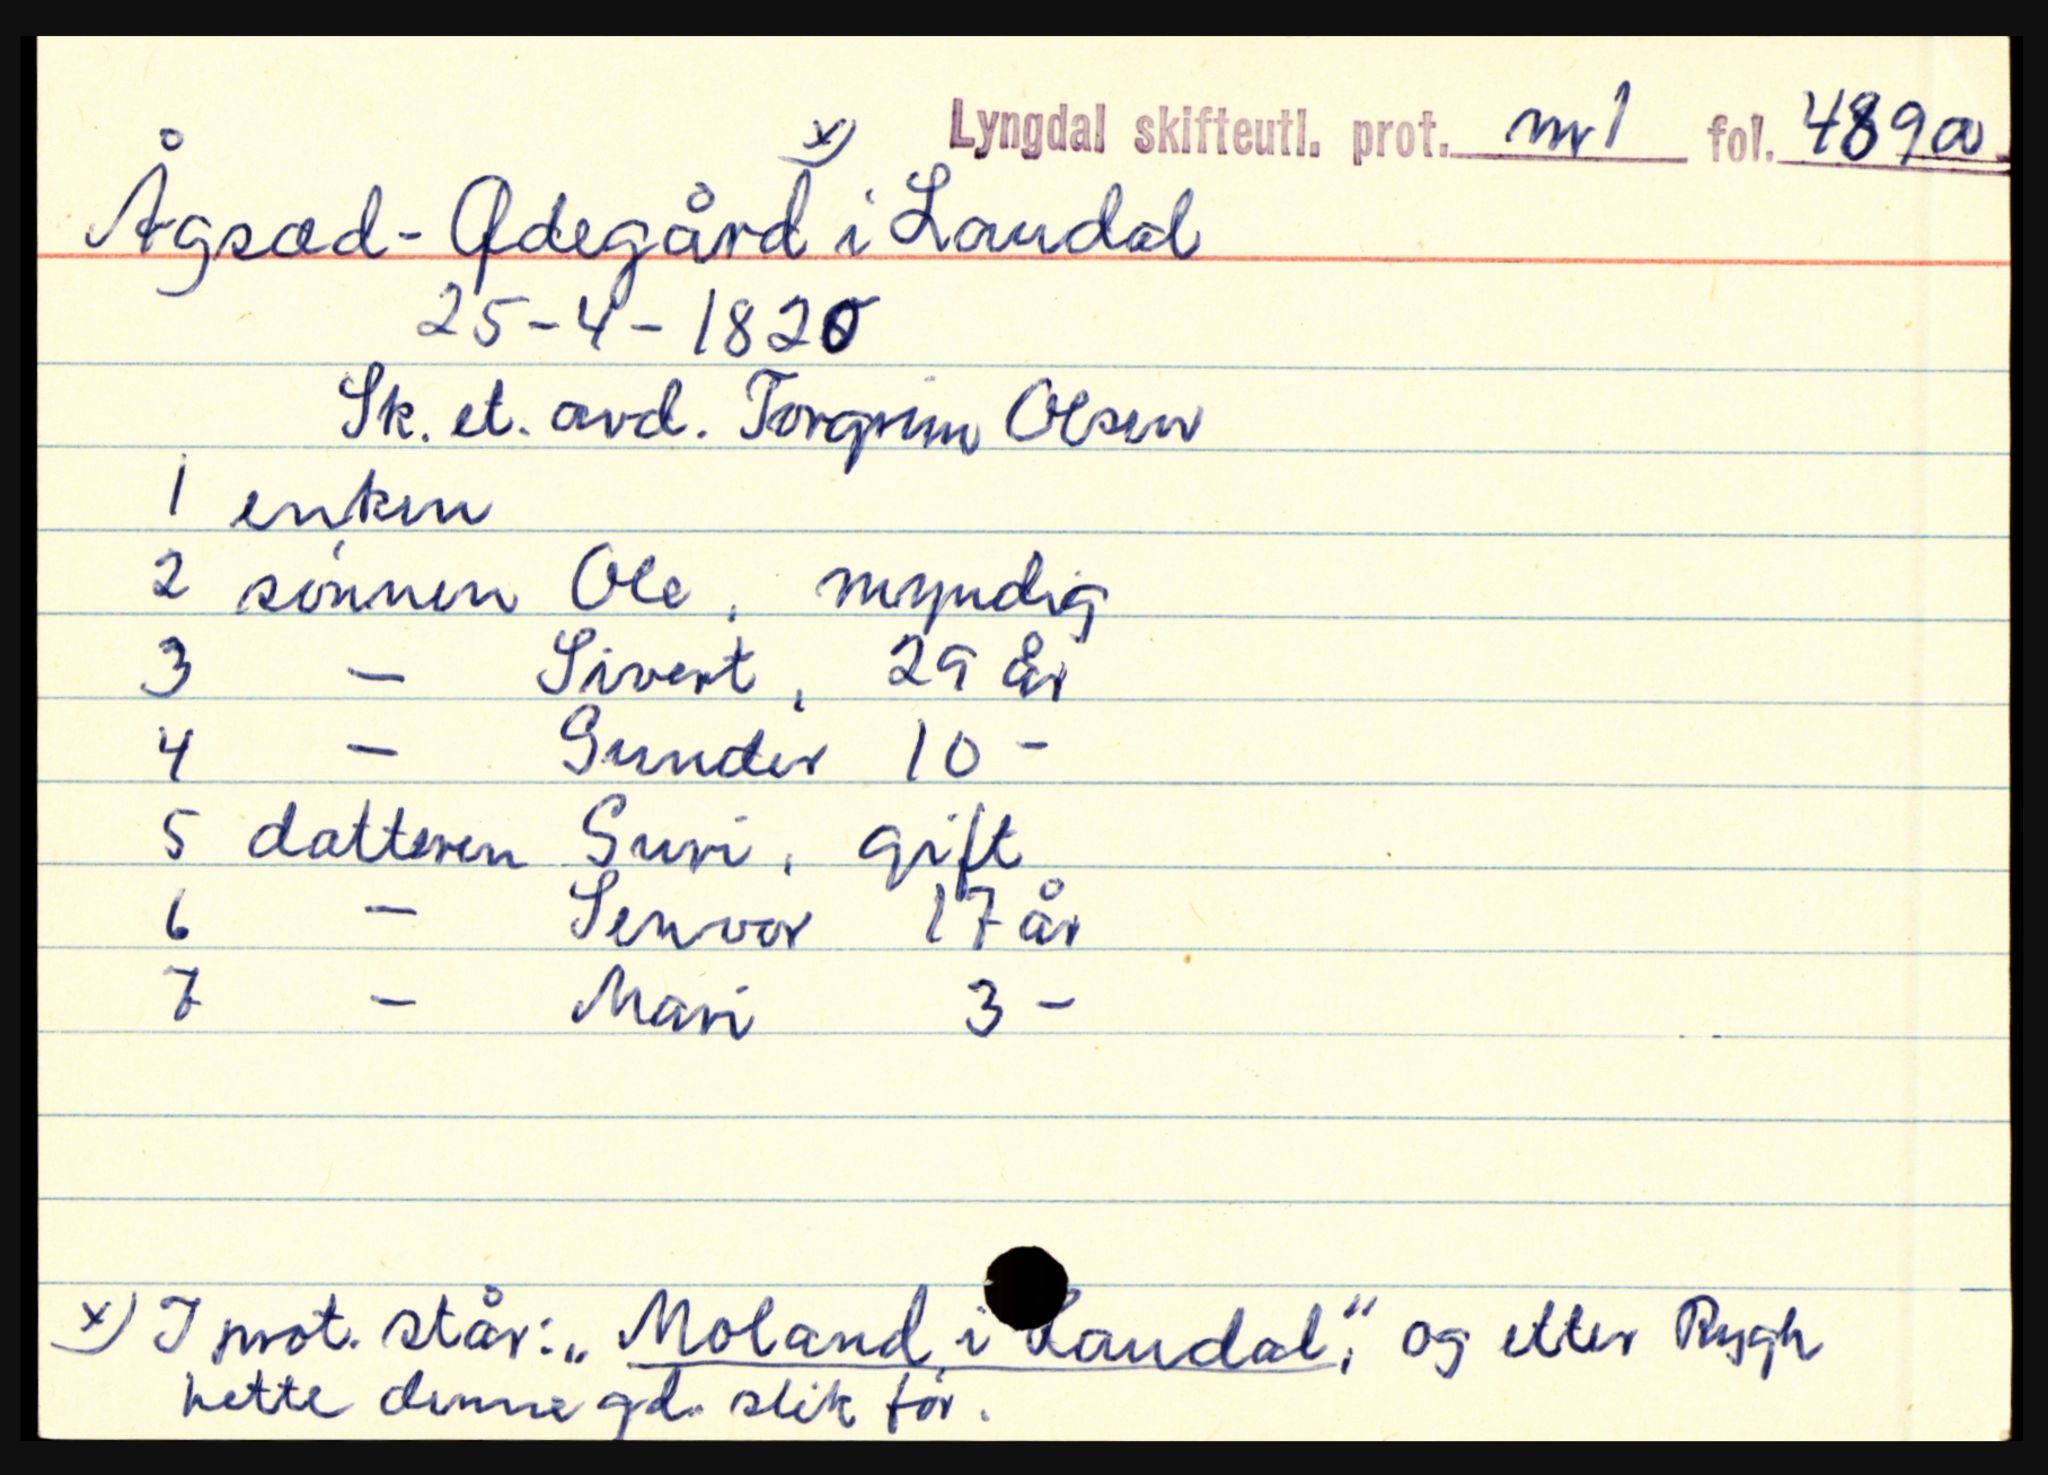 Lyngdal skifteutl. prot. nr 1 fol. 489a
Ågsæd - Ødegård x) i Laudal
25-4-1820
Sk. et. avd. Torgrim Olsen
1 enken
2 sønnen Ole, myndig
3 – Sivert, 29 år
4 – Gunder 10 –
5 datteren Guri, gift
6 – Senvor 17 år
7 – Mari 3 –
x) I prot. står: „Moland i Laudal," og etter Rygh
hette denne gd. slik før.